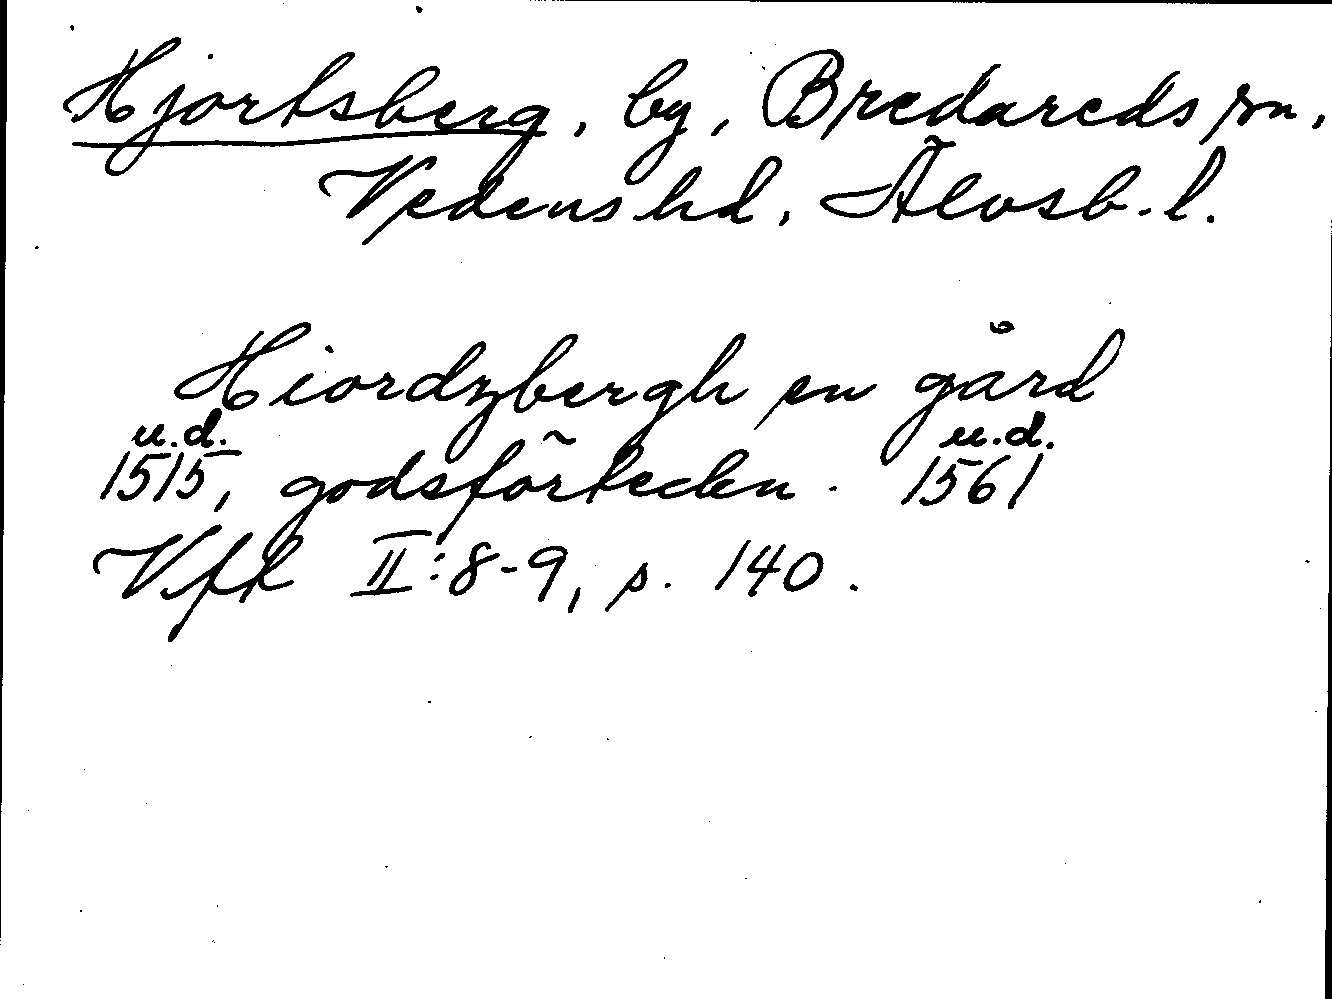 Hjortsberg, by, Bredareds sn,
Vedens hd, Älvsb. l.
Hiordzbergh en gård
u.d. u.d.
1515, godsförteckn. 1561
Vfr II:8-9, s. 140.